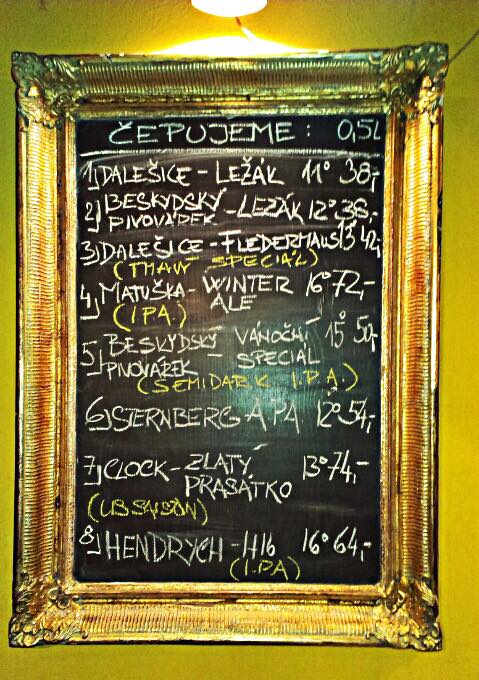 ČEPUJEME: 0,5L
1) DALEŠICE - LEŽÁK 11° 38,-
2) BESKYDSKÝ PIVOVÁREK - LEŽÁK 12° 38,-
3) DALEŠICE - FLEDERMAUS 13° 42,-
(TMAVÝ SPECIÁL)
4) MATUŠKA - WINTER ALE 16° 72,-
(IPA)
5) BESKYDSKÝ PIVOVÁREK - VÁNOČNÍ SPECIÁL 15° 50,-
(SEMIDARK I.P.A.)
6) STERNBERG APA 12° 54,-
7) CLOCK - ZLATÝ PRASÁTKO 13° 74,-
8) HENDRYCH - H16 16° 64,-
(I.PA)